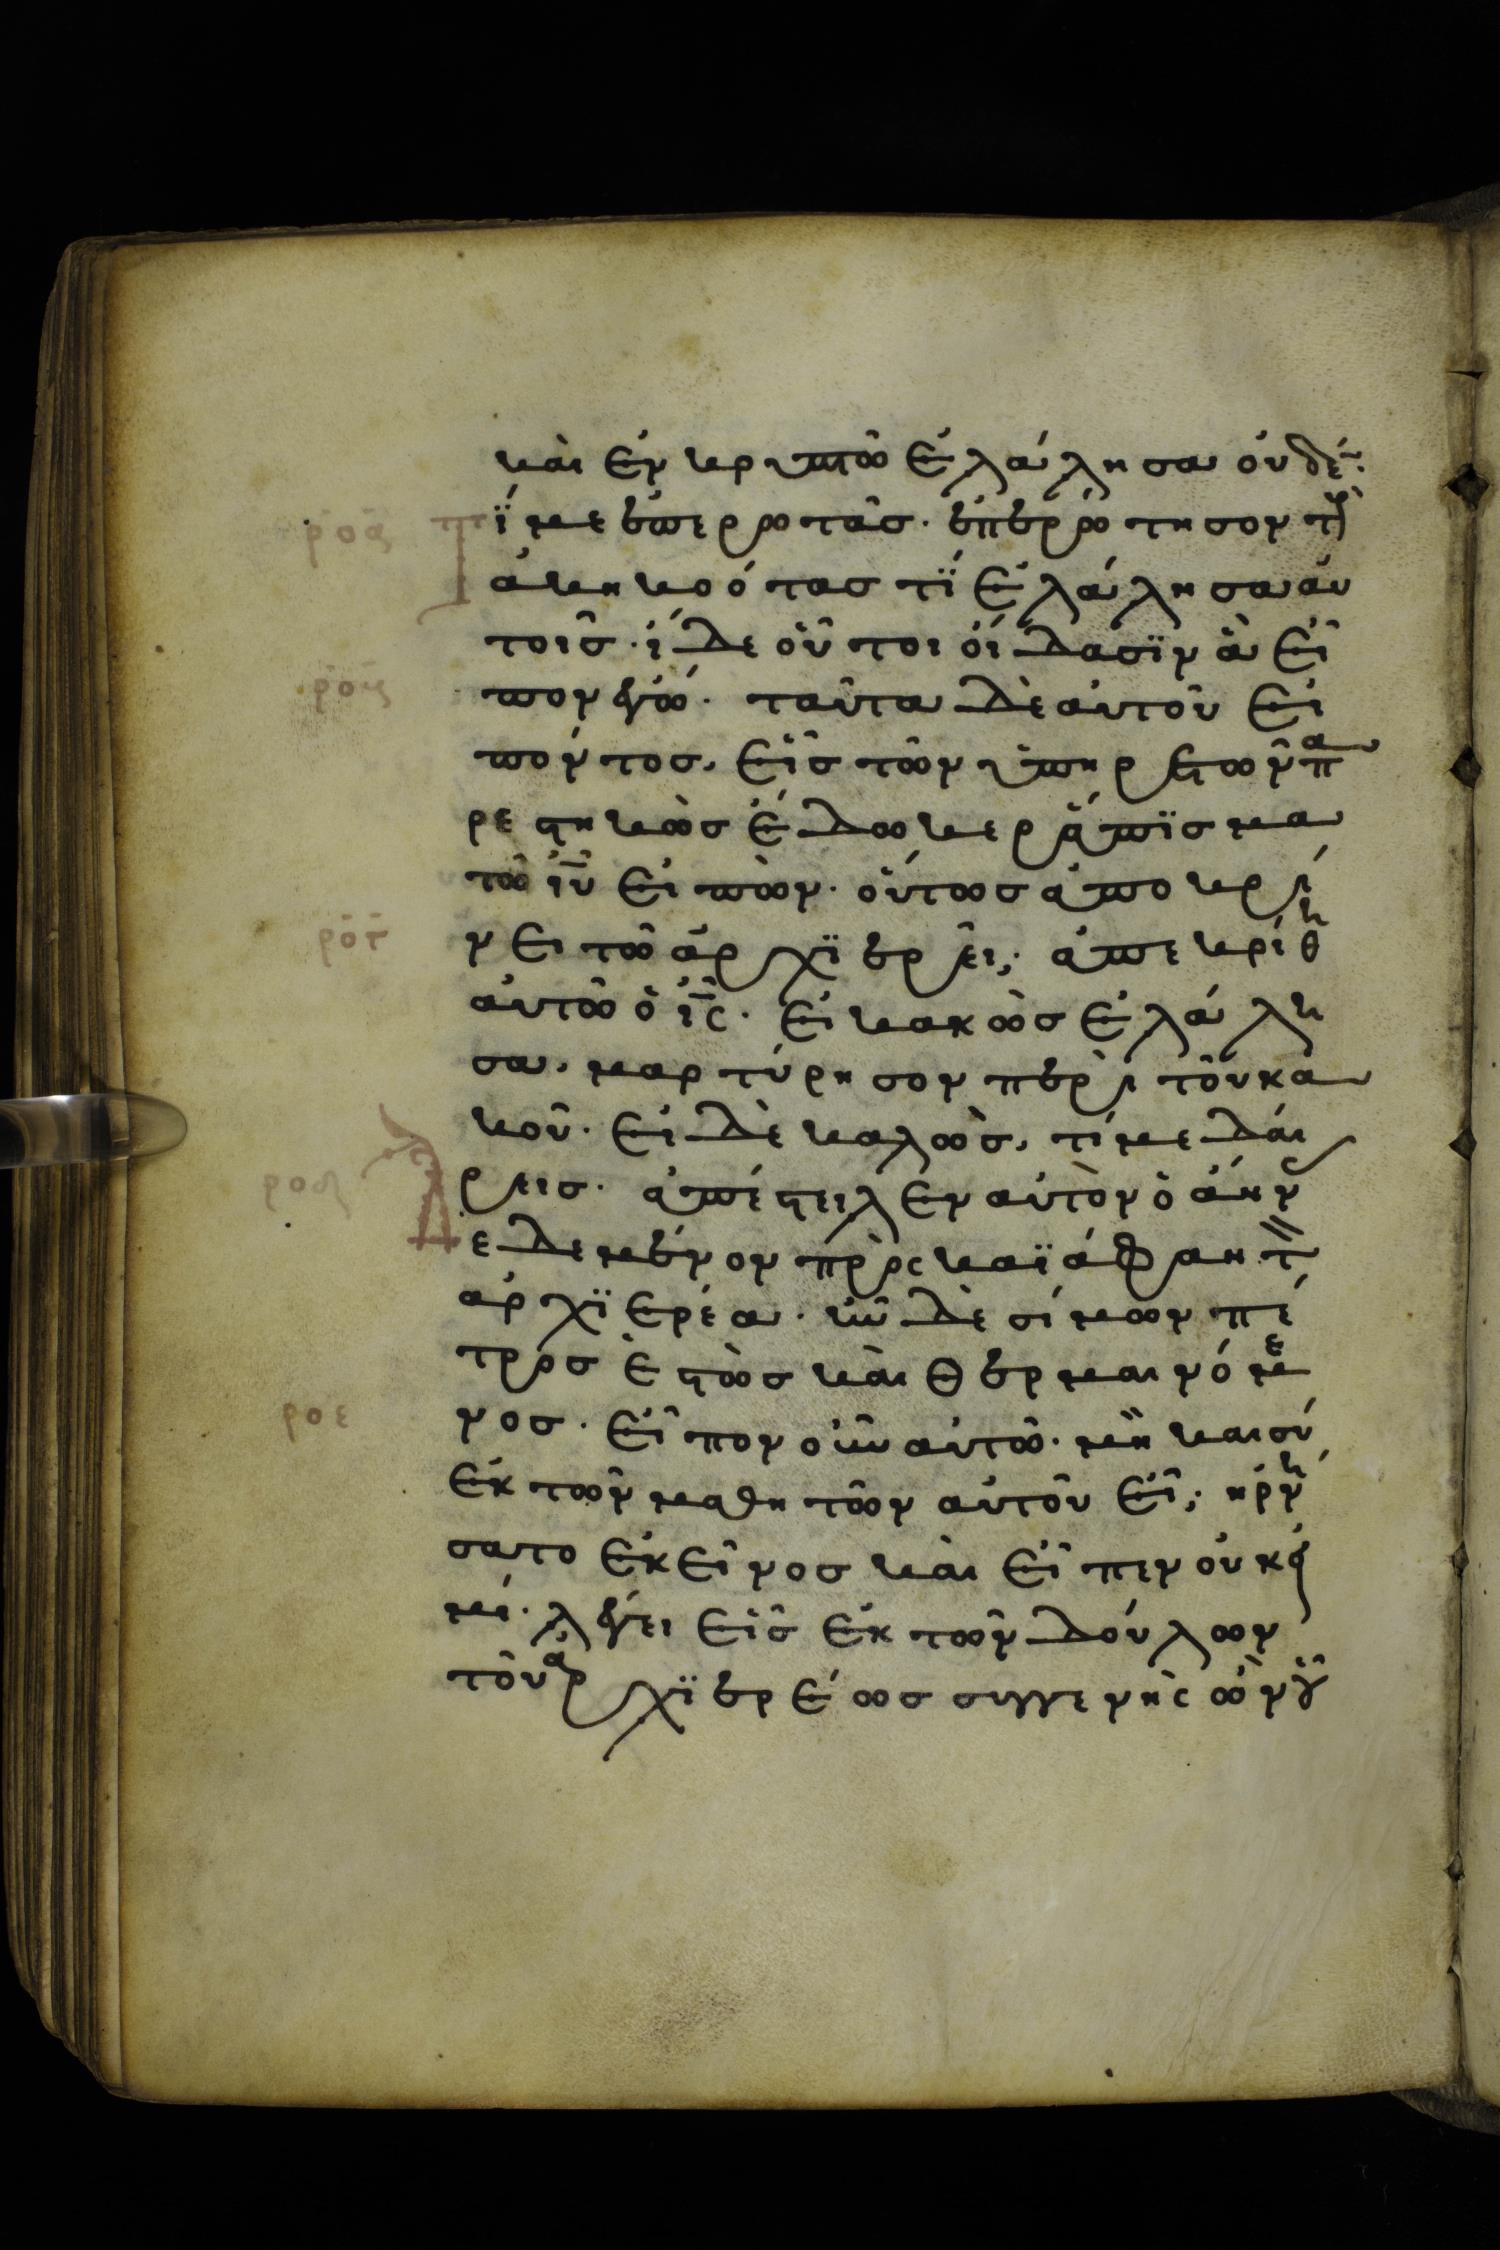 καὶ ἐν κρυπτῶ ἐλάλησα οὐδέν·
ροα τί με ἐπερωτᾶσ· ἐπερώτησον τοὺ
ἀκηκοότασ τΐ ἐλάλησα αὐ
τοῖσ· ἴδε οὗτοι οἴδασϊν ἃ εἶ
ρος πον ἐγώ· ταῦτα δὲ αὐτοῦ εἰ
πόντοσ, εἷσ τῶν ὑπηρετῶν πα
ρεστηκὼσ ἔδωκε ράπϊσμα
τῶ ιῦ εἰπὼν· οὕτωσ ἀποκρί
ροτ νει τῶ ἀρχϊερεῖ; ἀπεκρίθη
αὐτῶ ὁ ις· εἰ κακῶσ ἐλάλη
σα, μαρτύρησον περὶ τοῦ κα
κοῦ· εἰ δὲ καλῶσ, τί με δαί
ροδ ρεισ· ἀπέστειλεν αὐτὸν ὁ ἄνν
Α εδεμένον πρὸς καϊάφαν τ
ἀρχϊερέα· ἦν δὲ σίμων πέ
τροσ ἑστὼσ καὶ θερμαινόμε
ροε νοσ· εἶπον οὖν αὐτῶ· μὴ καὶ σὺ
ἐκ τῶν μαθητῶν αὐτοῦ εἶ; ἠρνή
σατο ἐκεῖνοσ καὶ εἶπεν οὐκ εἰ
μί· λέγει εἷσ ἐκ τῶν δούλων
τοῦ ἀρχϊερέωσ συγγενὴς ὢν οὗ